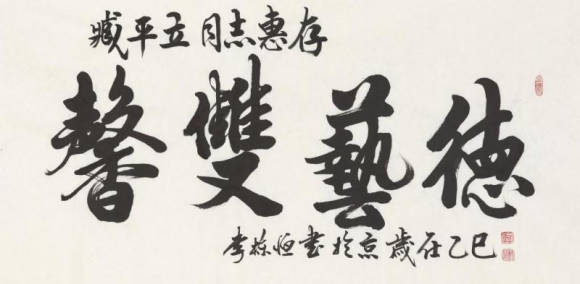 臧平立同志惠存
德藝雙馨
李栋恒書於京歲在乙巳